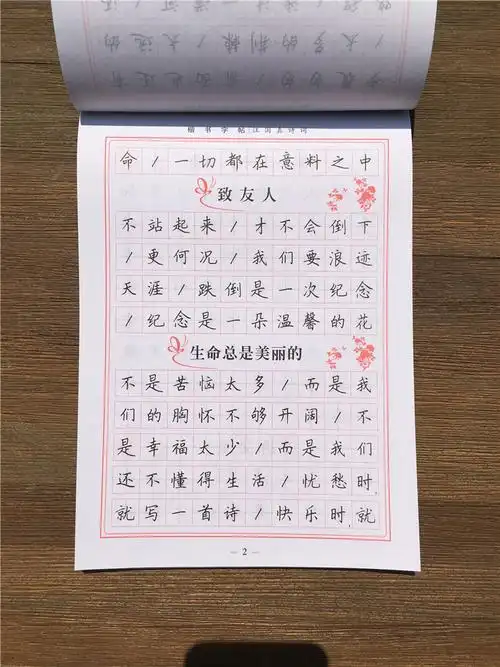 楷书字帖 汪国真诗词
命/一切都在意料之中
致友人
不站起来/才不会倒下
/更何况/我们要浪迹
天涯/跌倒是一次纪念
/纪念是一朵温馨的花
生命总是美丽的
不是苦恼太多/而是我
们的胸怀不够开阔/不
是幸福太少/而是我们
还不懂得生活/忧愁时
就写一首诗/快乐时就
— 2 —